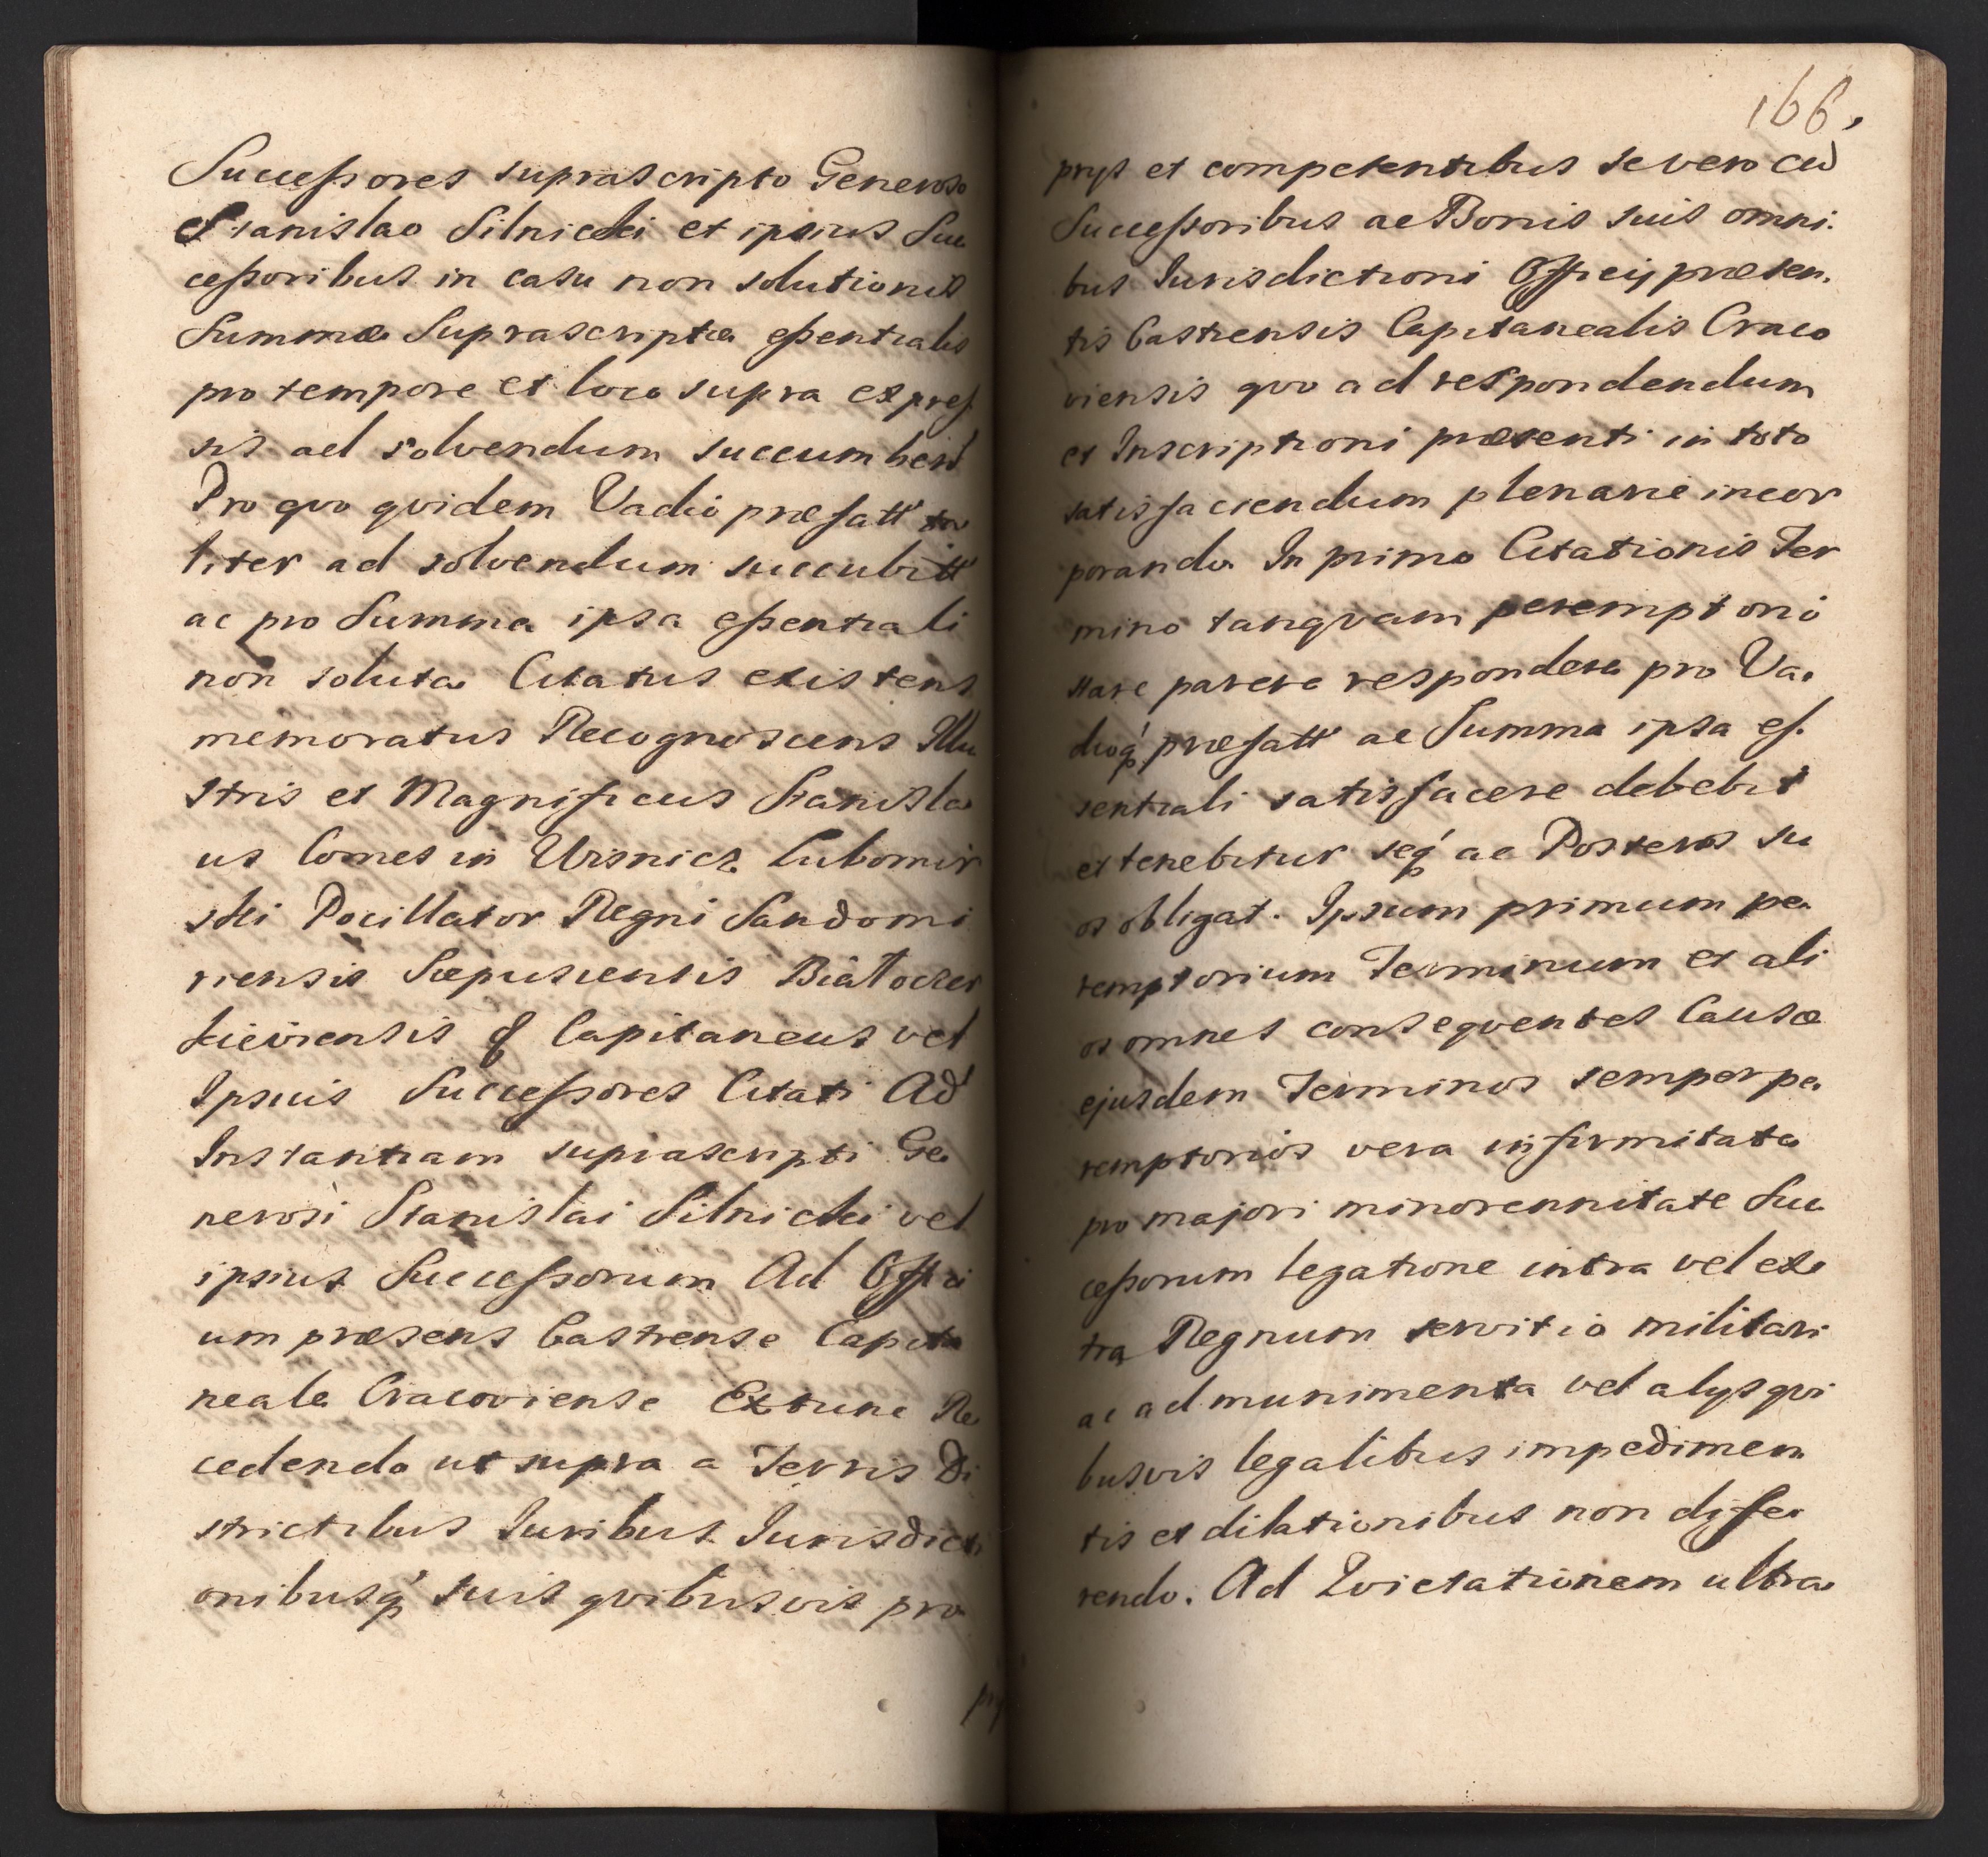 Successores suprascripto Generoso
Stanislao Silnicki et ipsius Suc
cessoribus in casu non solutionis
Summæ Suprascriptæ essentialis
pro tempore et loco supra expres
sis ad solvendum succumbent
Pro quo quidem Vadio præfatt to
titer ad solvendum succubitt
ac pro Summa ipsa essentiali
non soluta Citatus existens
memoratus Recognoscens Illu
stris et Magnificus Stanisla
us Comes in Wisnicz Lubomir
ski Pocillator Regni Sandomi
riensis Scepusiensis Białocer
kieviensis & Capitaneus vel
Ipsius Successores Citati Ad
Instantiam suprascripti Ge
nerosi Stanislai Silnicki vel
ipsius Successorum Ad Offici
um præsens Castrense Capita
neale Cracoviense Extunc Re
cedendo ut supra a Terris Di
strictibus Iuribus Iurisdicti
onibusq' suis quibusvis pro
pry
166.
prys et competentibus se vero cu
Successoribus ac Bonis suis omni.
bus Iurisdictioni Officij præsen.
tis Castrensis Capitanealis Craco
viensis quo ad respondendum
et Inscriptioni præsenti in toto
satisfaciendum plenarie incor
porando In primo Citationis Ter
mino tanquam peremptorio
stare parere respondere pro Va.
dioq' præfatt ac Summa ipsa es.
sentiali satisfacere debebit
et tenebitur seq' ac Posteros su
os obligat. Ipsum primum pe
remptorium Terminum et ali
os omnes consequentes Causæ
ejusdem Terminos semper pe
remptorios vera infirmitate
pro majori minorennitate Suc
cessorum legatione intra vel ex
tra Regnum servitio militari
ac ad munimenta vel alys qui
busvis legalibus impedimen
tis et dilationibus non diffe
rendo. Ad Evictationem ultra